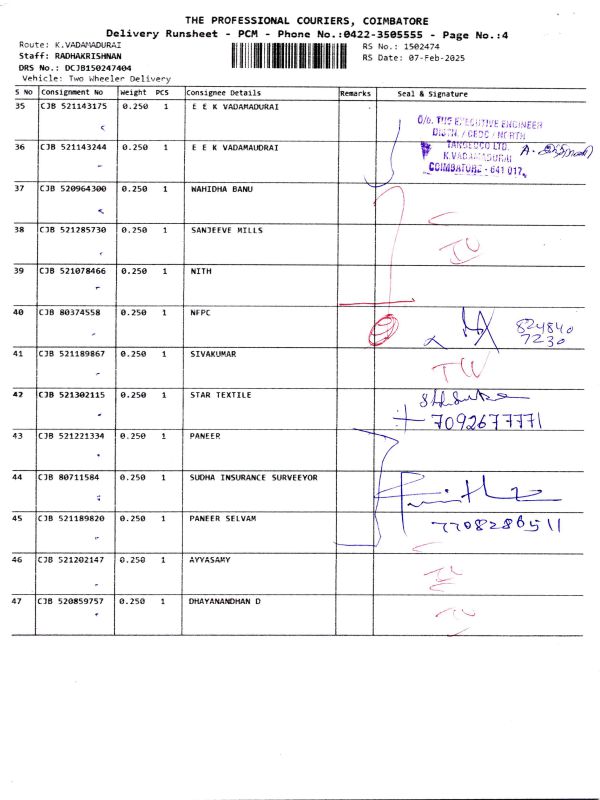 THE PROFESSIONAL COURIERS, COIMBATORE
Delivery Runsheet - PCM - Phone No.:0422-3505555 - Page No.:4
Route: K.VADAMADURAI RS No.: 1502474
Staff: RADHAKRISHNAN RS Date: 07-Feb-2025
DRS No.: DCJB150247404
Vehicle: Two Wheeler Delivery
S No Consignment No Weight PCS Consignee Details Remarks Seal & Signature
35 CJB 521143175 0.250 1 E E K VADAMADURAI
O/o. THE EXECUTIVE ENGINEER
DISTN. / CEDC / NORTH
36 CJB 521143244 0.250 1 E E K VADAMAUDRAI TANGEDCO LTD.
K.VADAMADURAI
COIMBATORE - 641 017.
37 CJB 520964300 0.250 1 WAHIDHA BANU
38 CJB 521285730 0.250 1 SANJEEVE MILLS
39 CJB 521078466 0.250 1 NITH
40 CJB 80374558 0.250 1 NFPC 824840
7230
41 CJB 521189867 0.250 1 SIVAKUMAR
42 CJB 521302115 0.250 1 STAR TEXTILE
7092677771
43 CJB 521221334 0.250 1 PANEER
44 CJB 80711584 0.250 1 SUDHA INSURANCE SURVEEYOR
45 CJB 521189820 0.250 1 PANEER SELVAM 7708286511
46 CJB 521202147 0.250 1 AYYASAMY
47 CJB 520859757 0.250 1 DHAYANANDHAN D